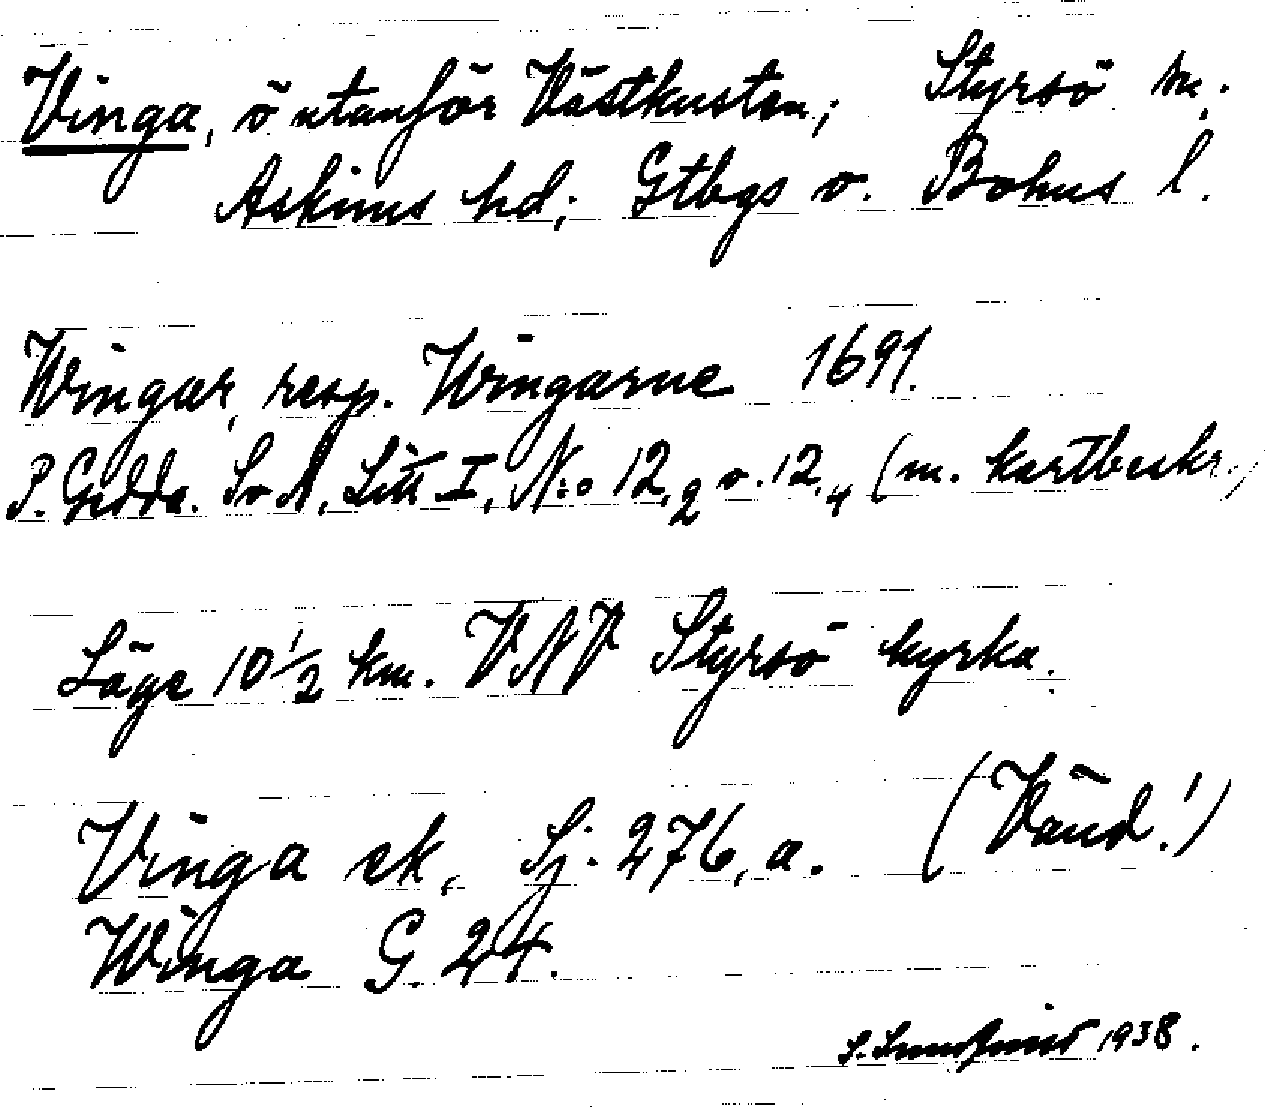 Vinga, ö utanför Västkusten; Styrsö sn;
Askims hd; Gtbgs o. Bohus l.
Wingar, resp. Wingarne 1691.
P. Gedda. SvA, Litt I, N:o 12,2 o. 12,4 (m. kartbeskr.)
Läge 10 1/2 km. VNV Styrsö kyrka.
Vinga ek, Sj. 276, a. (Vänd!)
Winga G. 24.
1938.